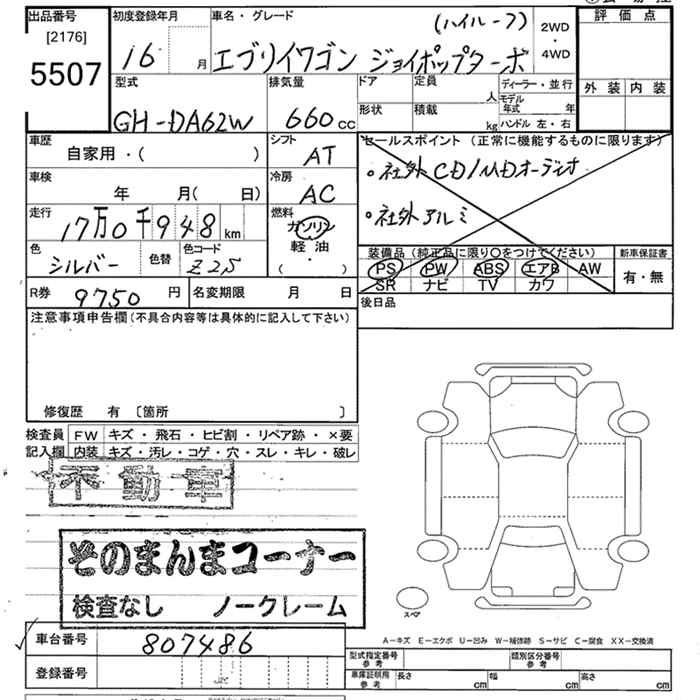 出品番号 初度登録年月 車名・グレード 評価点
[2176]
5507
16 月 エブリイワゴン ジョイポップターボ (ハイルーフ) 2WD・4WD
型式 排気量 ドア 定員 人 ディーラー・並行 外装 内装
GH-DA62W 660cc 形状 積載 kg モデル年式 年
ハンドル 左・右
車歴 シフト セールスポイント (正常に機能するものに限ります)
自家用・( ) AT
・社外 CD/MDオーディオ
車検 冷房
年 月( 日) AC
・社外アルミ
走行 燃料
17万0千948km ガソリン
軽油
( ・ )
色 色替 色コード 装備品 (純正品に限り○をつけてください) 新車保証書
シルバー Z2S PS PW ABS エアB AW 有・無
SR ナビ TV カワ
R券 9750円 名変期限 月 日 後日品
注意事項申告欄(不具合内容等は具体的に記入して下さい)
修復歴 有 〔箇所 〕
検査員 FW キズ・飛石・ヒビ割・リペア跡・×要
記入欄 内装 キズ・汚レ・コゲ・穴・スレ・キレ・破レ
不動車
そのまんまコーナー
検査なし ノークレーム
スペア
車台番号 807486
A−キズ E−エクボ U−凹み W−補修跡 S−サビ C−腐食 XX−交換済
登録番号 型式指定番号 参考 類別区分番号 参考
車庫証明用 参考 長さ cm 幅 cm 高さ cm